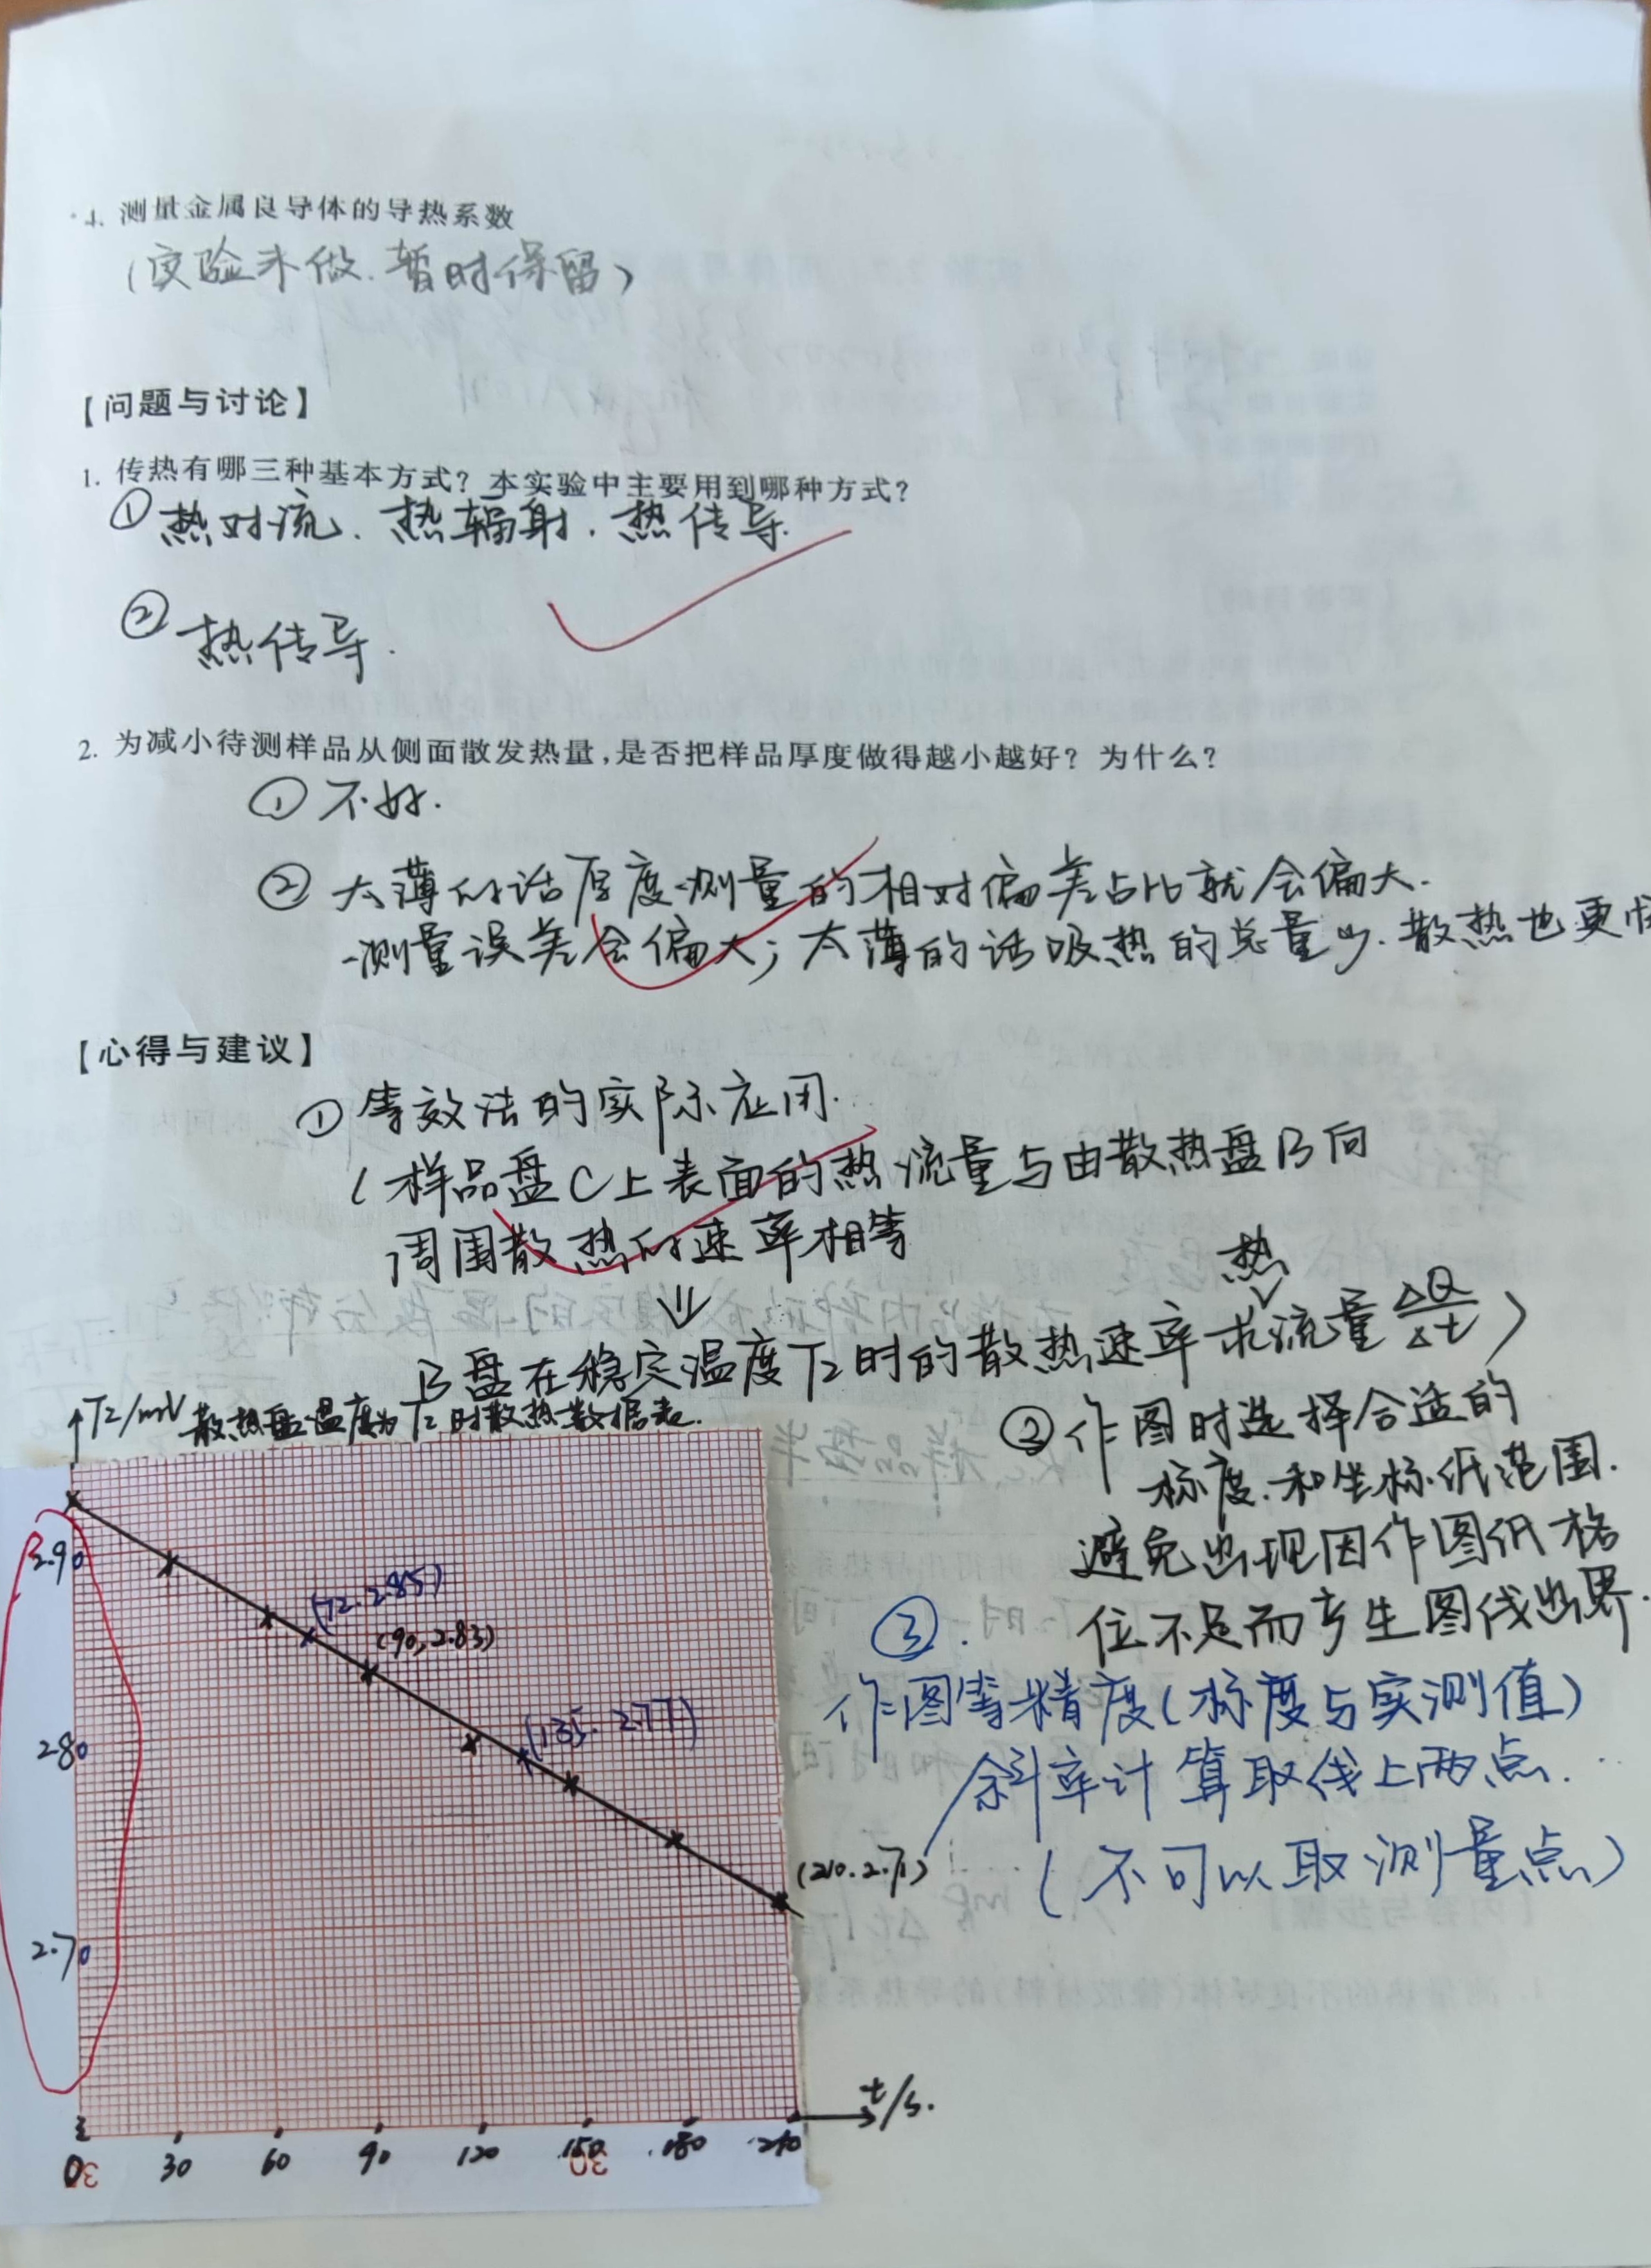 4. 测量金属良导体的导热系数
(实验未做.暂时保留)
【问题与讨论】
1. 传热有哪三种基本方式？本实验中主要用到哪种方式？
① 热对流、热辐射、热传导.
② 热传导.
2. 为减小待测样品从侧面散发热量,是否把样品厚度做得越小越好？为什么？
① 不好.
② 太薄的话厚度测量的相对偏差占比就会偏大.
测量误差会偏大;太薄的话吸热的总量少.散热也更快
【心得与建议】
① 等效法的实际应用.
(样品盘C上表面的热流量与由散热盘B向
周围散热的速率相等
⇓
热
B盘在稳定温度T2时的散热速率求流量 ΔQ/Δt)
T2/mV 散热盘温度为T2时散热数据表.
② 作图时选择合适的
标度.和坐标纸范围.
避免出现因作图纸格
位不足而产生图线出界.
③.
作图等精度(标度与实测值)
斜率计算取线上两点.
(不可以取测量点)
2.90
(72.2.85)
(90,2.83)
2.80
(135.2.77)
(210.2.71)
2.70
t/s.
0 30 60 90 120 150 180 210